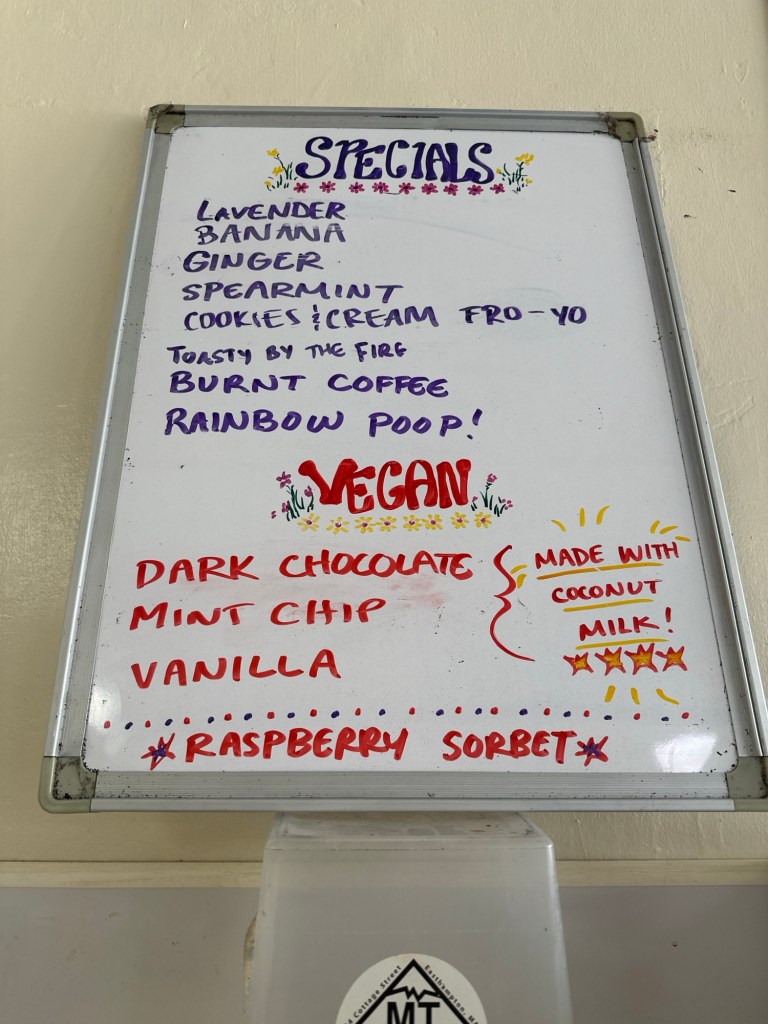 SPECIALS
LAVENDER
BANANA
GINGER
SPEARMINT
COOKIES & CREAM FRO-YO
TOASTY BY THE FIRE
BURNT COFFEE
RAINBOW POOP!
VEGAN
DARK CHOCOLATE
MINT CHIP
VANILLA
MADE WITH
COCONUT
MILK!
RASPBERRY SORBET
Cottage Street
Easthampton,
MT